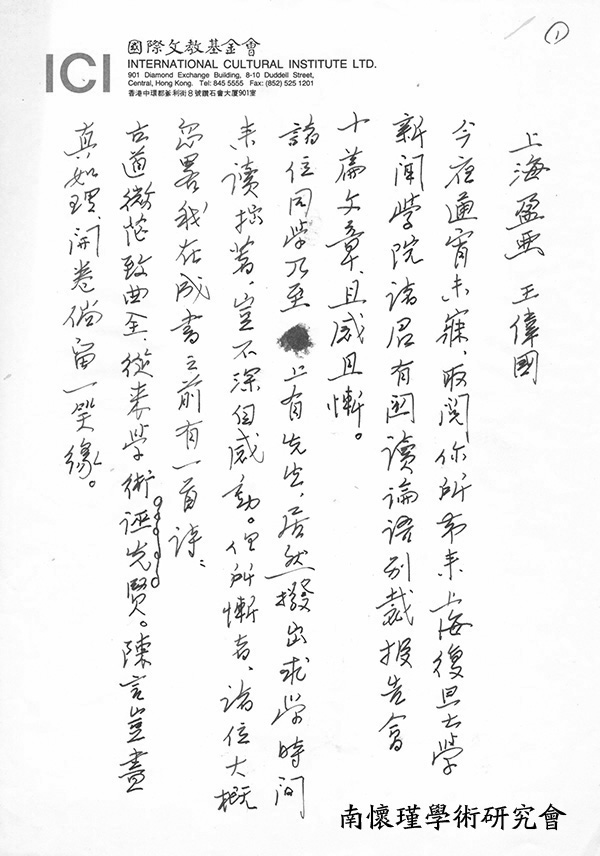 ①
ICI
國際文教基金會
INTERNATIONAL CULTURAL INSTITUTE LTD.
901 Diamond Exchange Building, 8-10 Duddell Street,
Central, Hong Kong. Tel: 845 5555 Fax: (852) 525 1201
香港中環都爹利街8號鑽石會大厦901室
上海盈 王偉國
今夜通宵未寐、取閱你所帶来上海復旦大學
新聞學院諸君有関讀論語別裁报告會
十篇文章、且感且慚。
諸位同學乃至 上有先生、居然撥出求學時间
来读拙著、豈不深自感動。但所慚者、諸位大概
忽畧我在成書之前有一首诗:
古道微茫致曲全、從来學術诬先賢。陳言豈盡
真如理、開卷倘留一笑緣。
南懷瑾學術研究會